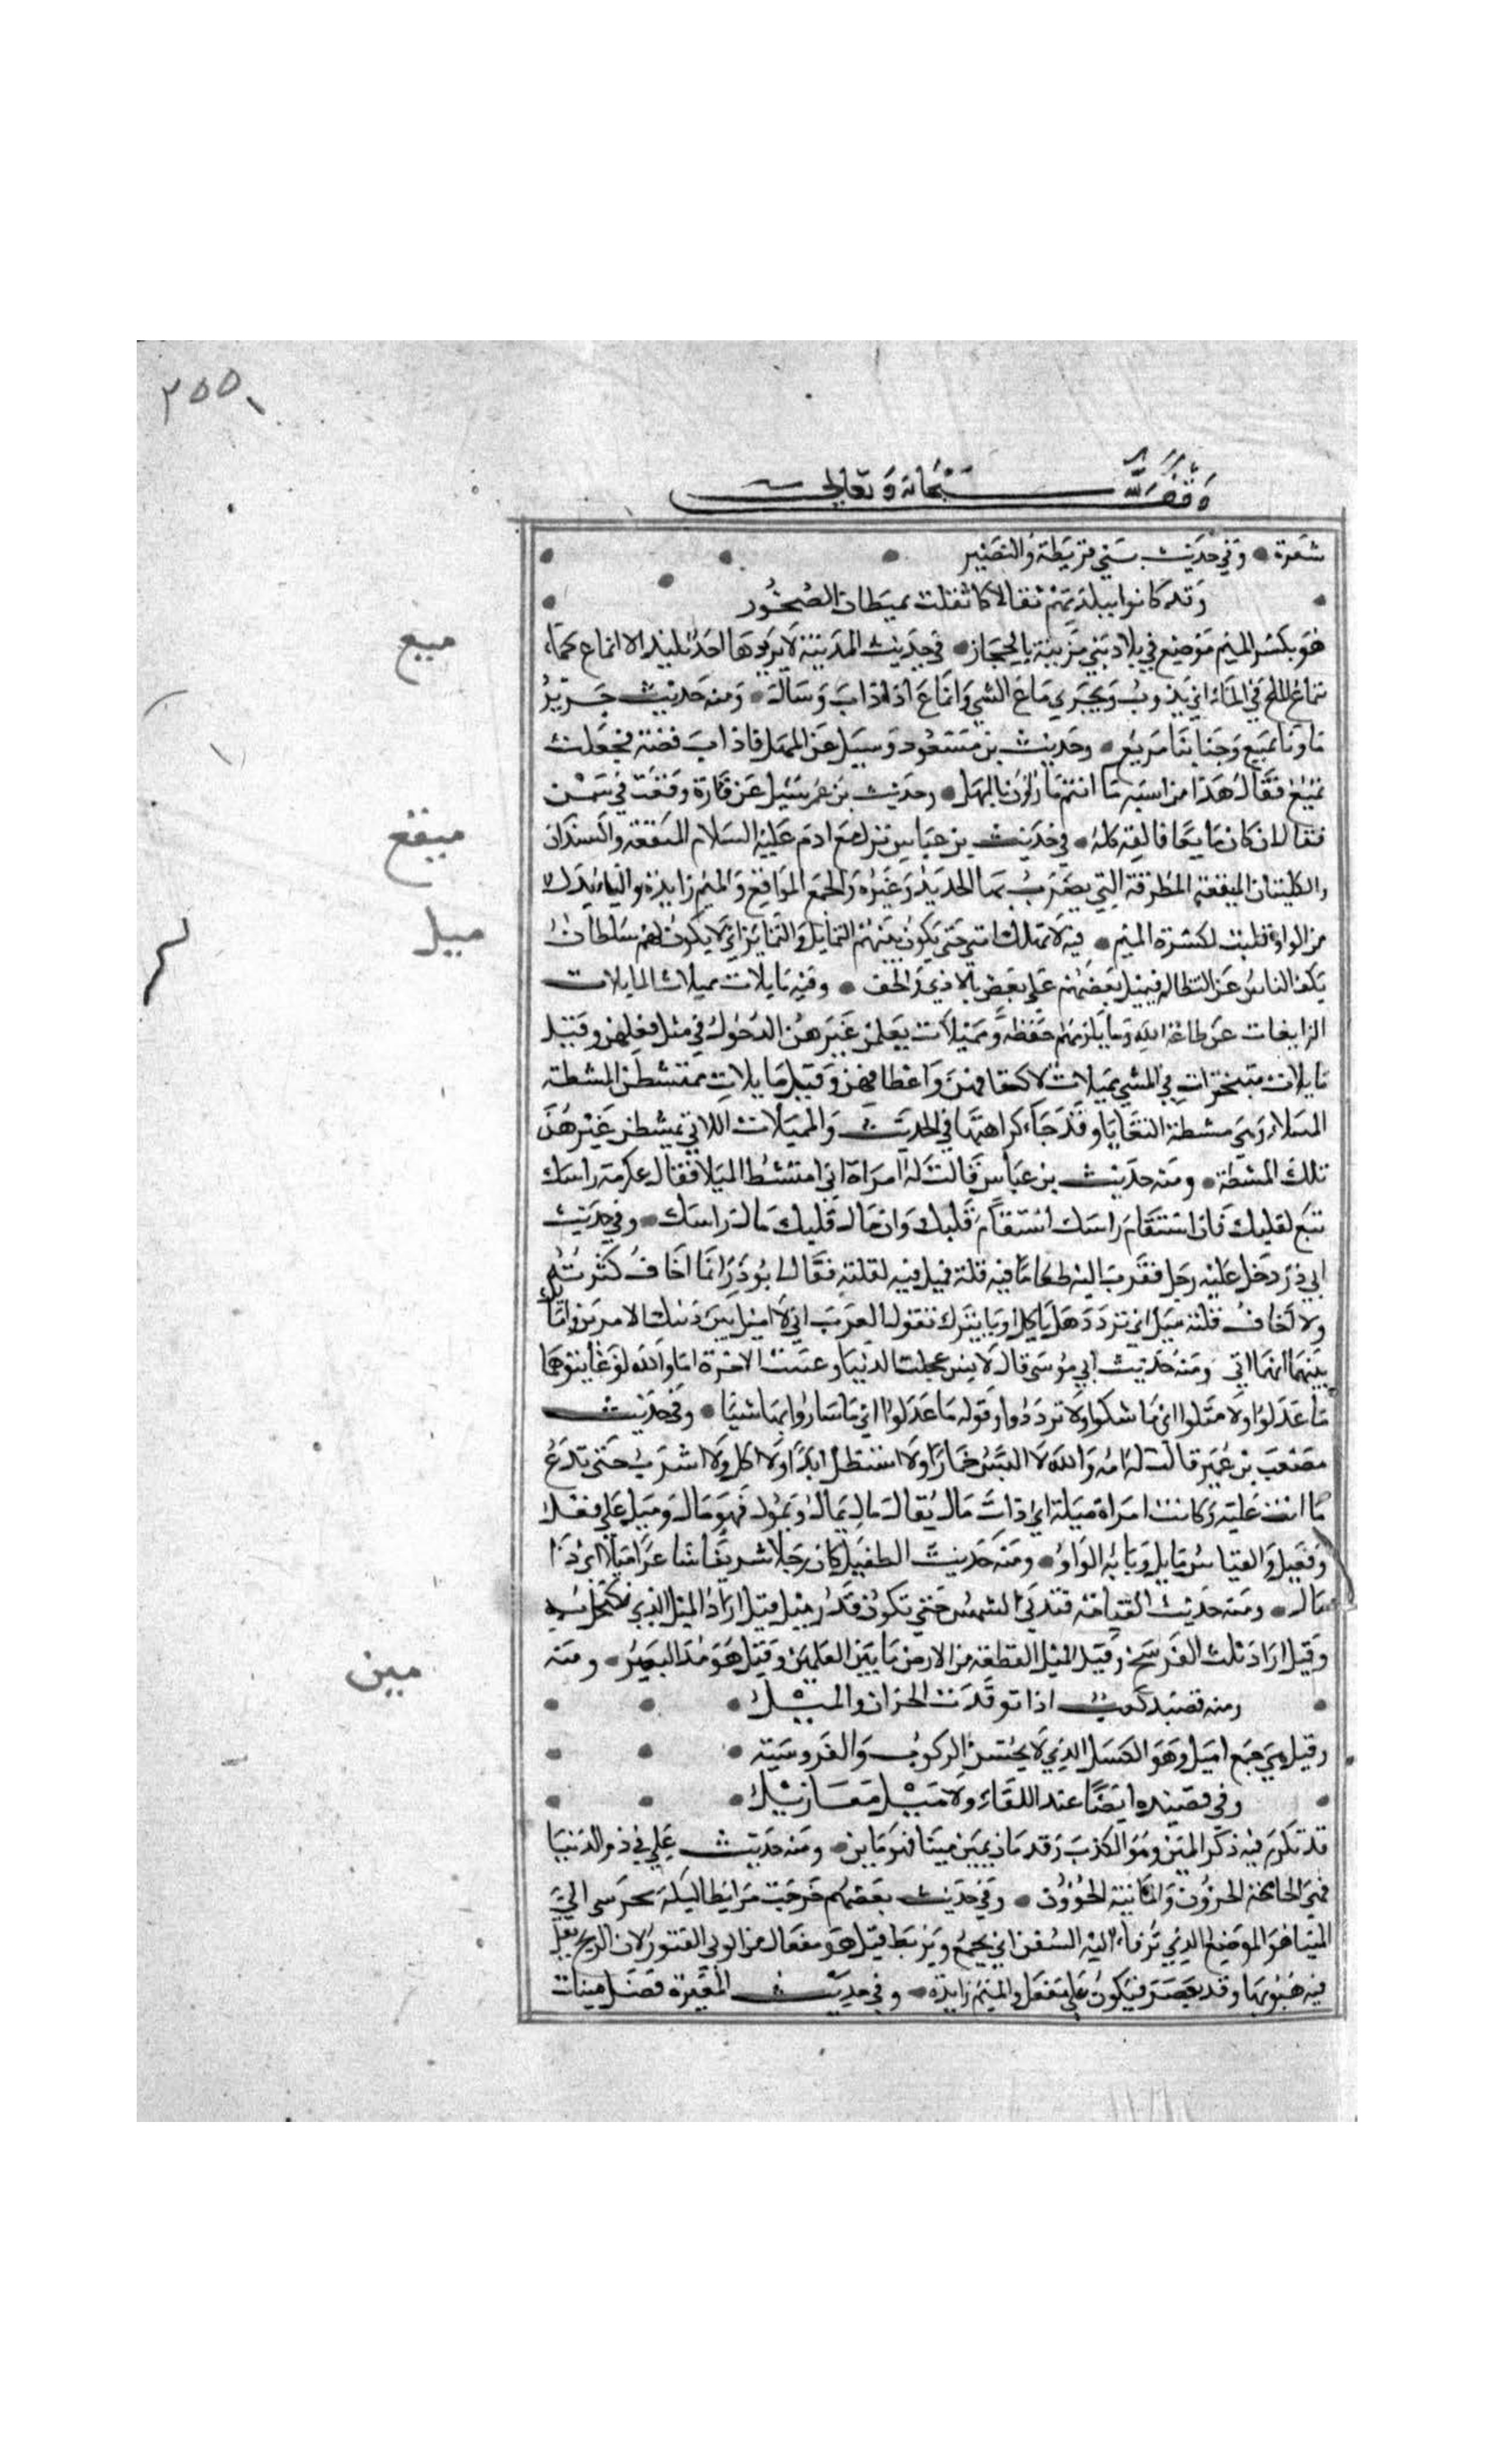 ٢٥٥
وقف لله سبحانه وتعالى
شعرة • وفي حديث بني قريظة والنضير
وقد كانوا ببلدتهم ثقالا كما ثقلت بميطان الصخور
هو بكسر الميم موضع في بلاد بني مزينة بالحجاز • في حديث المدينة لا يريدها احد بكيد الا انماع كما
ميع
تماع الملح في الماء اي يذوب ويجري ماع الشي وانماع اذا ذاب وسال • ومنه حديث جرير
ماونا يميع وجنابنا مريع • وحديث بن مسعود وسيل عن المهل فاذاب فضة فجعلت
تميع فقال هذا من اشبه ما انتم راؤن بالمهل • وحديث بن عمر سيل عن فارة وقعت في سمن
فقال ان كان مايعا فالقه كله • في حديث بن عباس نزل مع ادم عليه السلام الميقعة والسندان
ميقع
والكلبتان الميقعة المطرقة التي يضرب بها الحديد وغيره والجمع المواقع والميم زايدة والياء بدل
من الواو قلبت لكسرة الميم • فيه لا تهلك امتي حتى يكون بينهم التمايل والتمايز اي لا يكون لهم سلطان
ميل
يكف الناس عن التظالم فيميل بعضهم على بعض بالاذي والحيف • وفيه مايلات مميلات المايلات
الزايغات عن طاعة الله وما يلزمهن حفظه ومميلات يعلمن غيرهن الدخول في مثل فعلهن وقيل
مايلات متبخترات في المشي مميلات لاكتافهن واعطافهن وقيل مايلات يمتشطن المشطة
الميلاء وهي مشطة البغايا وقد جاء كراهتها في الحديث والمميلات اللاتي يمشطن غيرهن
تلك المشطة • ومنه حديث بن عباس قالت له امراة اني امتشط الميلا فقال عكرمة راسك
تبع لقلبك فان استقام راسك استقام قلبك وان مال قلبك مال راسك • وفي حديث
ابي ذر دخل عليه رجل فقرب اليه طعاما فيه قلة فميل فيه لقلته فقال ابو ذر انما اخاف كثرته
ولا اخاف قلته ميل اي تردد هل ياكل او يترك تقول العرب اني لا ميل بين ذينك الامرين وامايل
بينهما ايهما اتي ومنه حديث ابي موسى قال لانس عجلت الدنيا وغيبت الاخرة اما والله لو عاينوها
ما عدلوا ولا ميلوا اي ما شكوا ولا ترددوا وقوله ما عدلوا اي ما ساووا بها شيا • وفي حديث
مصعب بن عمير قالت له امه والله لا البس خمارا ولا استظل ابدا ولا اكل ولا اشرب حتى تدع
ما انت عليه وكانت امراة ميلة اي ذات مال يقال مال يمال ويمول فهو مال وميل على فعل
وفيعل والقياس مايل وبابه الواو • ومنه حديث الطفيل كان رجلا شريفا شاعرا ميلا اي ذا
مال • ومنه حديث القيامة فتدني الشمس حتي تكون قدر ميل قيل اراد الميل الذي يكتحل به
وقيل اراد ثلث الفرسخ وقيل الميل القطعة من الارض ما بين العلمين وقيل هو مد البصر • ومنه
ومنه قصيد كعب اذا توقدت الحزان والميل •
وقيل هي جمع اميل وهو الكسل الذي لا يحسن الركوب والفروسية •
وفي قصيده ايضا عند اللقاء ولا ميل معازيل •
قد تكرر فيه ذكر المين وهو الكذب وقد مان يمين مينا فهو ماين • ومنه حديث علي في ذم الدنيا
مين
فهي الجامحة الحرون والماينة الخوون • وفي حديث بعضهم خرجت مرابطا ليلة محرسي الي
المينا هو الموضع الذي ترفاء اليه السفن اي يجمع ويربط قيل هو مفعال من الوني الفتور لان الريح يقل
فيه هبوبها وقد يقصر فيكون على مفعل والميم زايدة • وفي حديث المغيرة فضل مينات